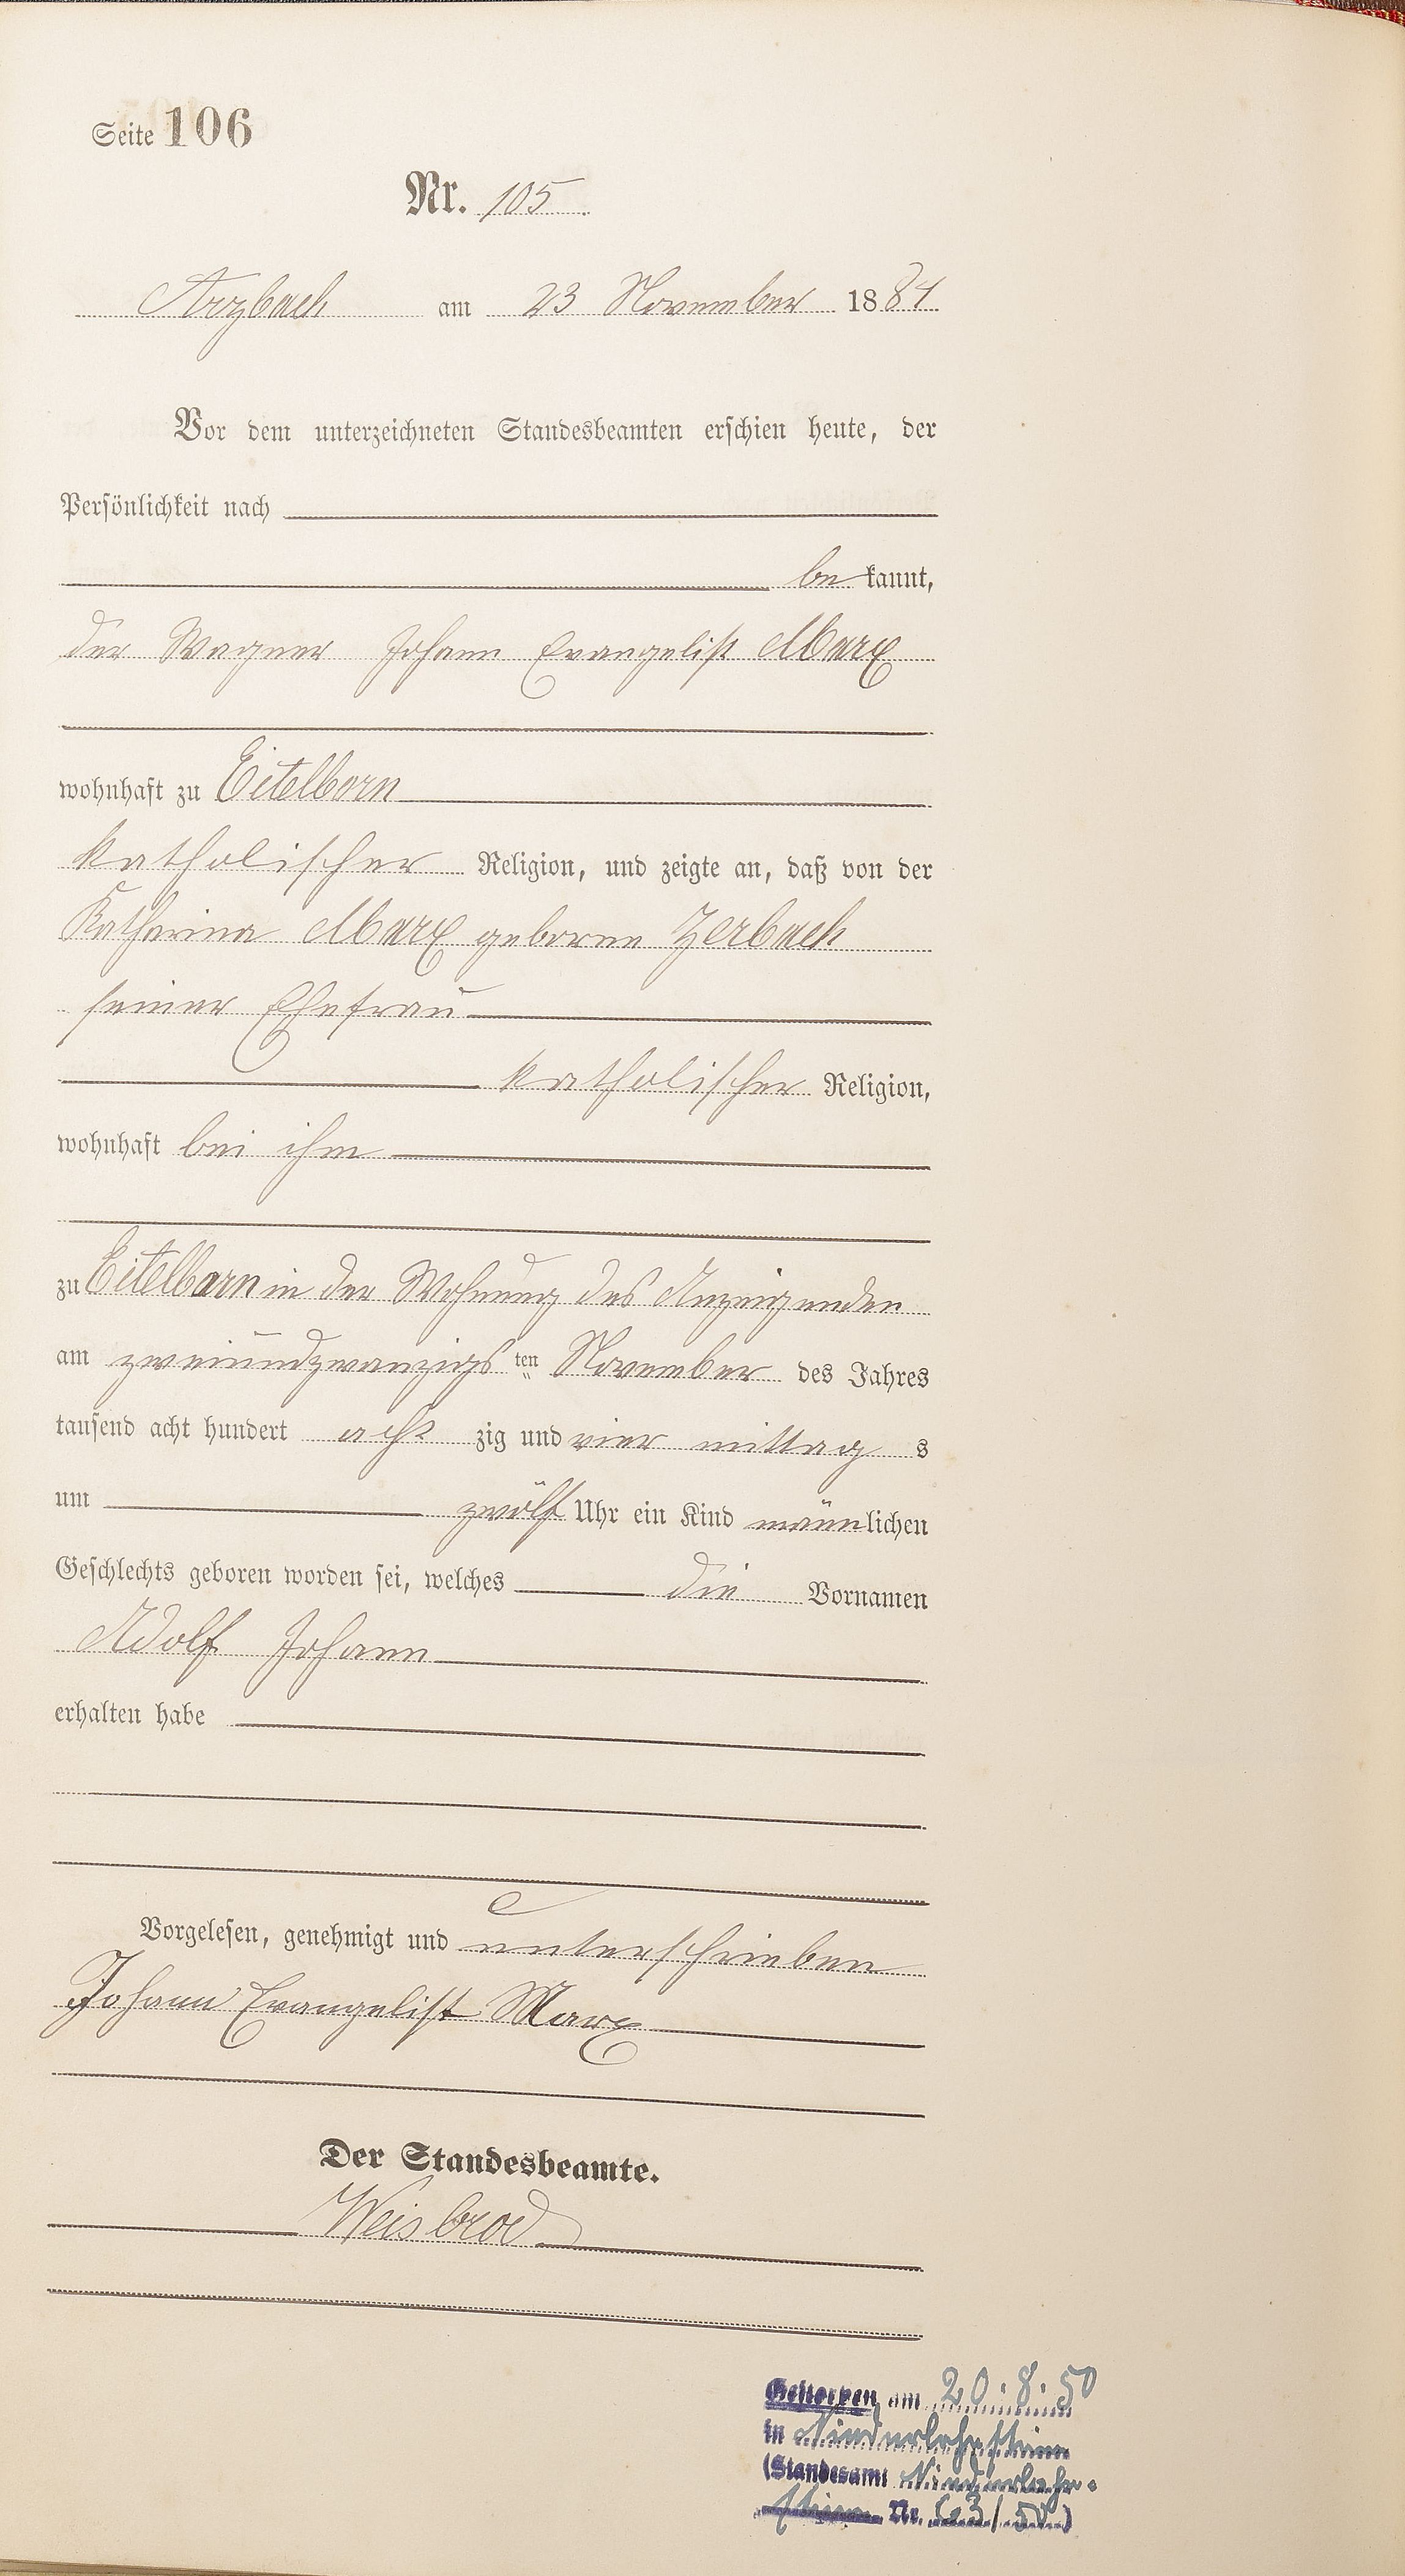 Seite 106
Nr. 105
Arzbach am 23 November 1884
Vor dem unterzeichneten Standesbeamten erschien heute, der
Persönlichkeit nach
be kannt,
der Wagner Johann Evangelist Marx
wohnhaft zu Eitelborn
katholischer Religion, und zeigte an, daß von der
Katharina Marx geborne Zerbach
seiner Ehefrau
katholischer Religion,
wohnhaft bei ihm
zu Eitelborn in der Wohnung des Anzeigenden
am zweiundzwanzigs ten November des Jahres
tausend acht hundert acht zig und vier mittag s
um zwölf Uhr ein Kind männlichen
Geschlechts geboren worden sei, welches die Vornamen
Adolf Johann
erhalten habe
Vorgelesen, genehmigt und unterschrieben
Johann Evangelist Marx
Der Standesbeamte.
Weisbrod
Gestorben am 20.8.50
in Niederlahnstein
(Standesamt Niederlahn-
stein Nr. /50)